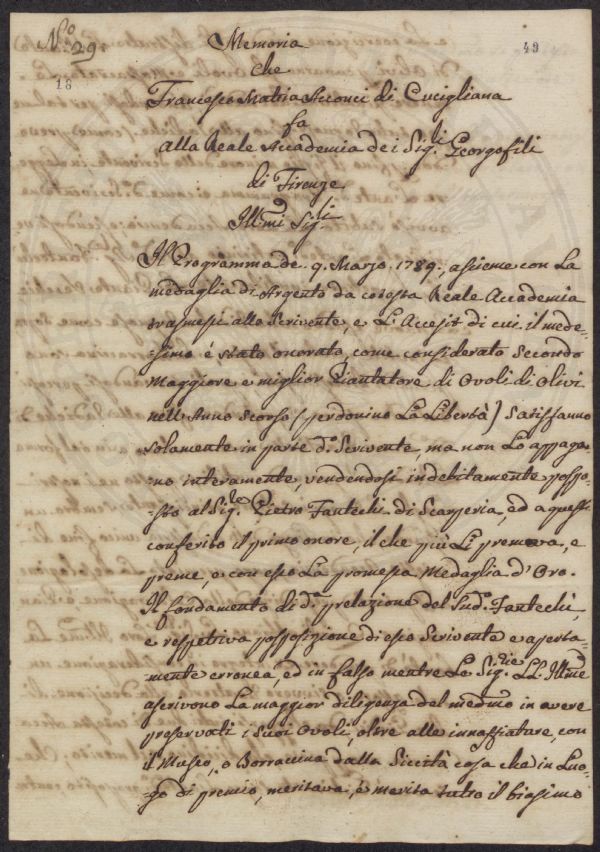 N.º 29.
Memoria
49
18
che
Francesco Maria Acconci di Cucigliana
fa
alla Reale Accademia dei Sig.li Georgofili
di Firenze
Ill:mi Sig.li
Il Programma de 9. Marzo 1789., assieme con La
medaglia di Argento da cotesta Reale Accademia
trasmesi allo Scrivente, e L'Accesit di cui il mede-
=simo é stato onorato, come considerato Secondo
Maggiore e miglior Piantatore di Ovoli di Olivi
nell'Anno Scorso (perdonino La Libertà) Satisfanno
solamente in parte d.º Scrivente, ma non Lo appaga-
no interamente, vendendosi indebitamente pospo-
=sto al Sig.re Pietro Fantechi di Scarperia, ed a questi
conferito il primo onore, il che più Li premeva, e
preme, e con esso La promessa Medaglia d'Oro.
Il fondamento di d.ª prelazione del Sud.º Fantechi,
e respetiva posposizione di esso Scrivente e aperta-
mente erronea, ed in falso mentre Le Sig.rie LL. Ill:me
ascrivono La maggior diligenza del medmo in avere
preservati i Suoi Ovoli, oltre alle innaffiature, con
il Museo, o Borraccina dalla Siccità cosa che in Luo-
go di premio, meritava, e merita tutto il biasimo